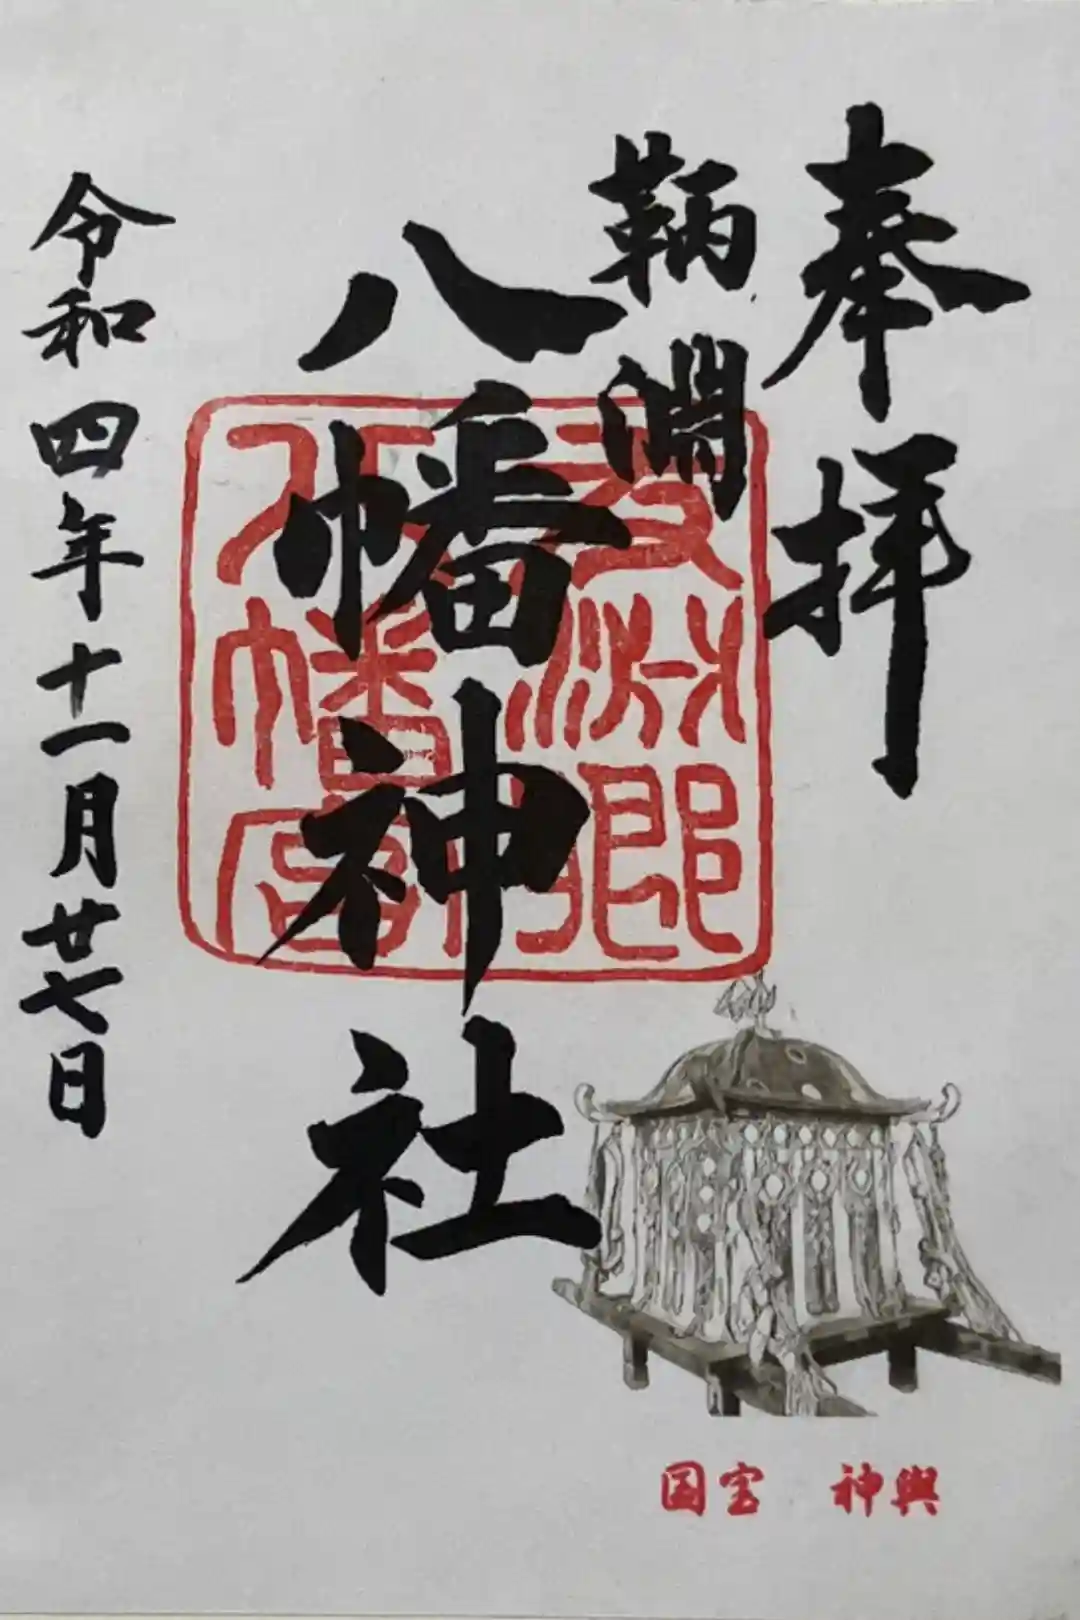 奉拝
鞆淵
八幡神社
令和四年十一月廿七日
国宝 神輿